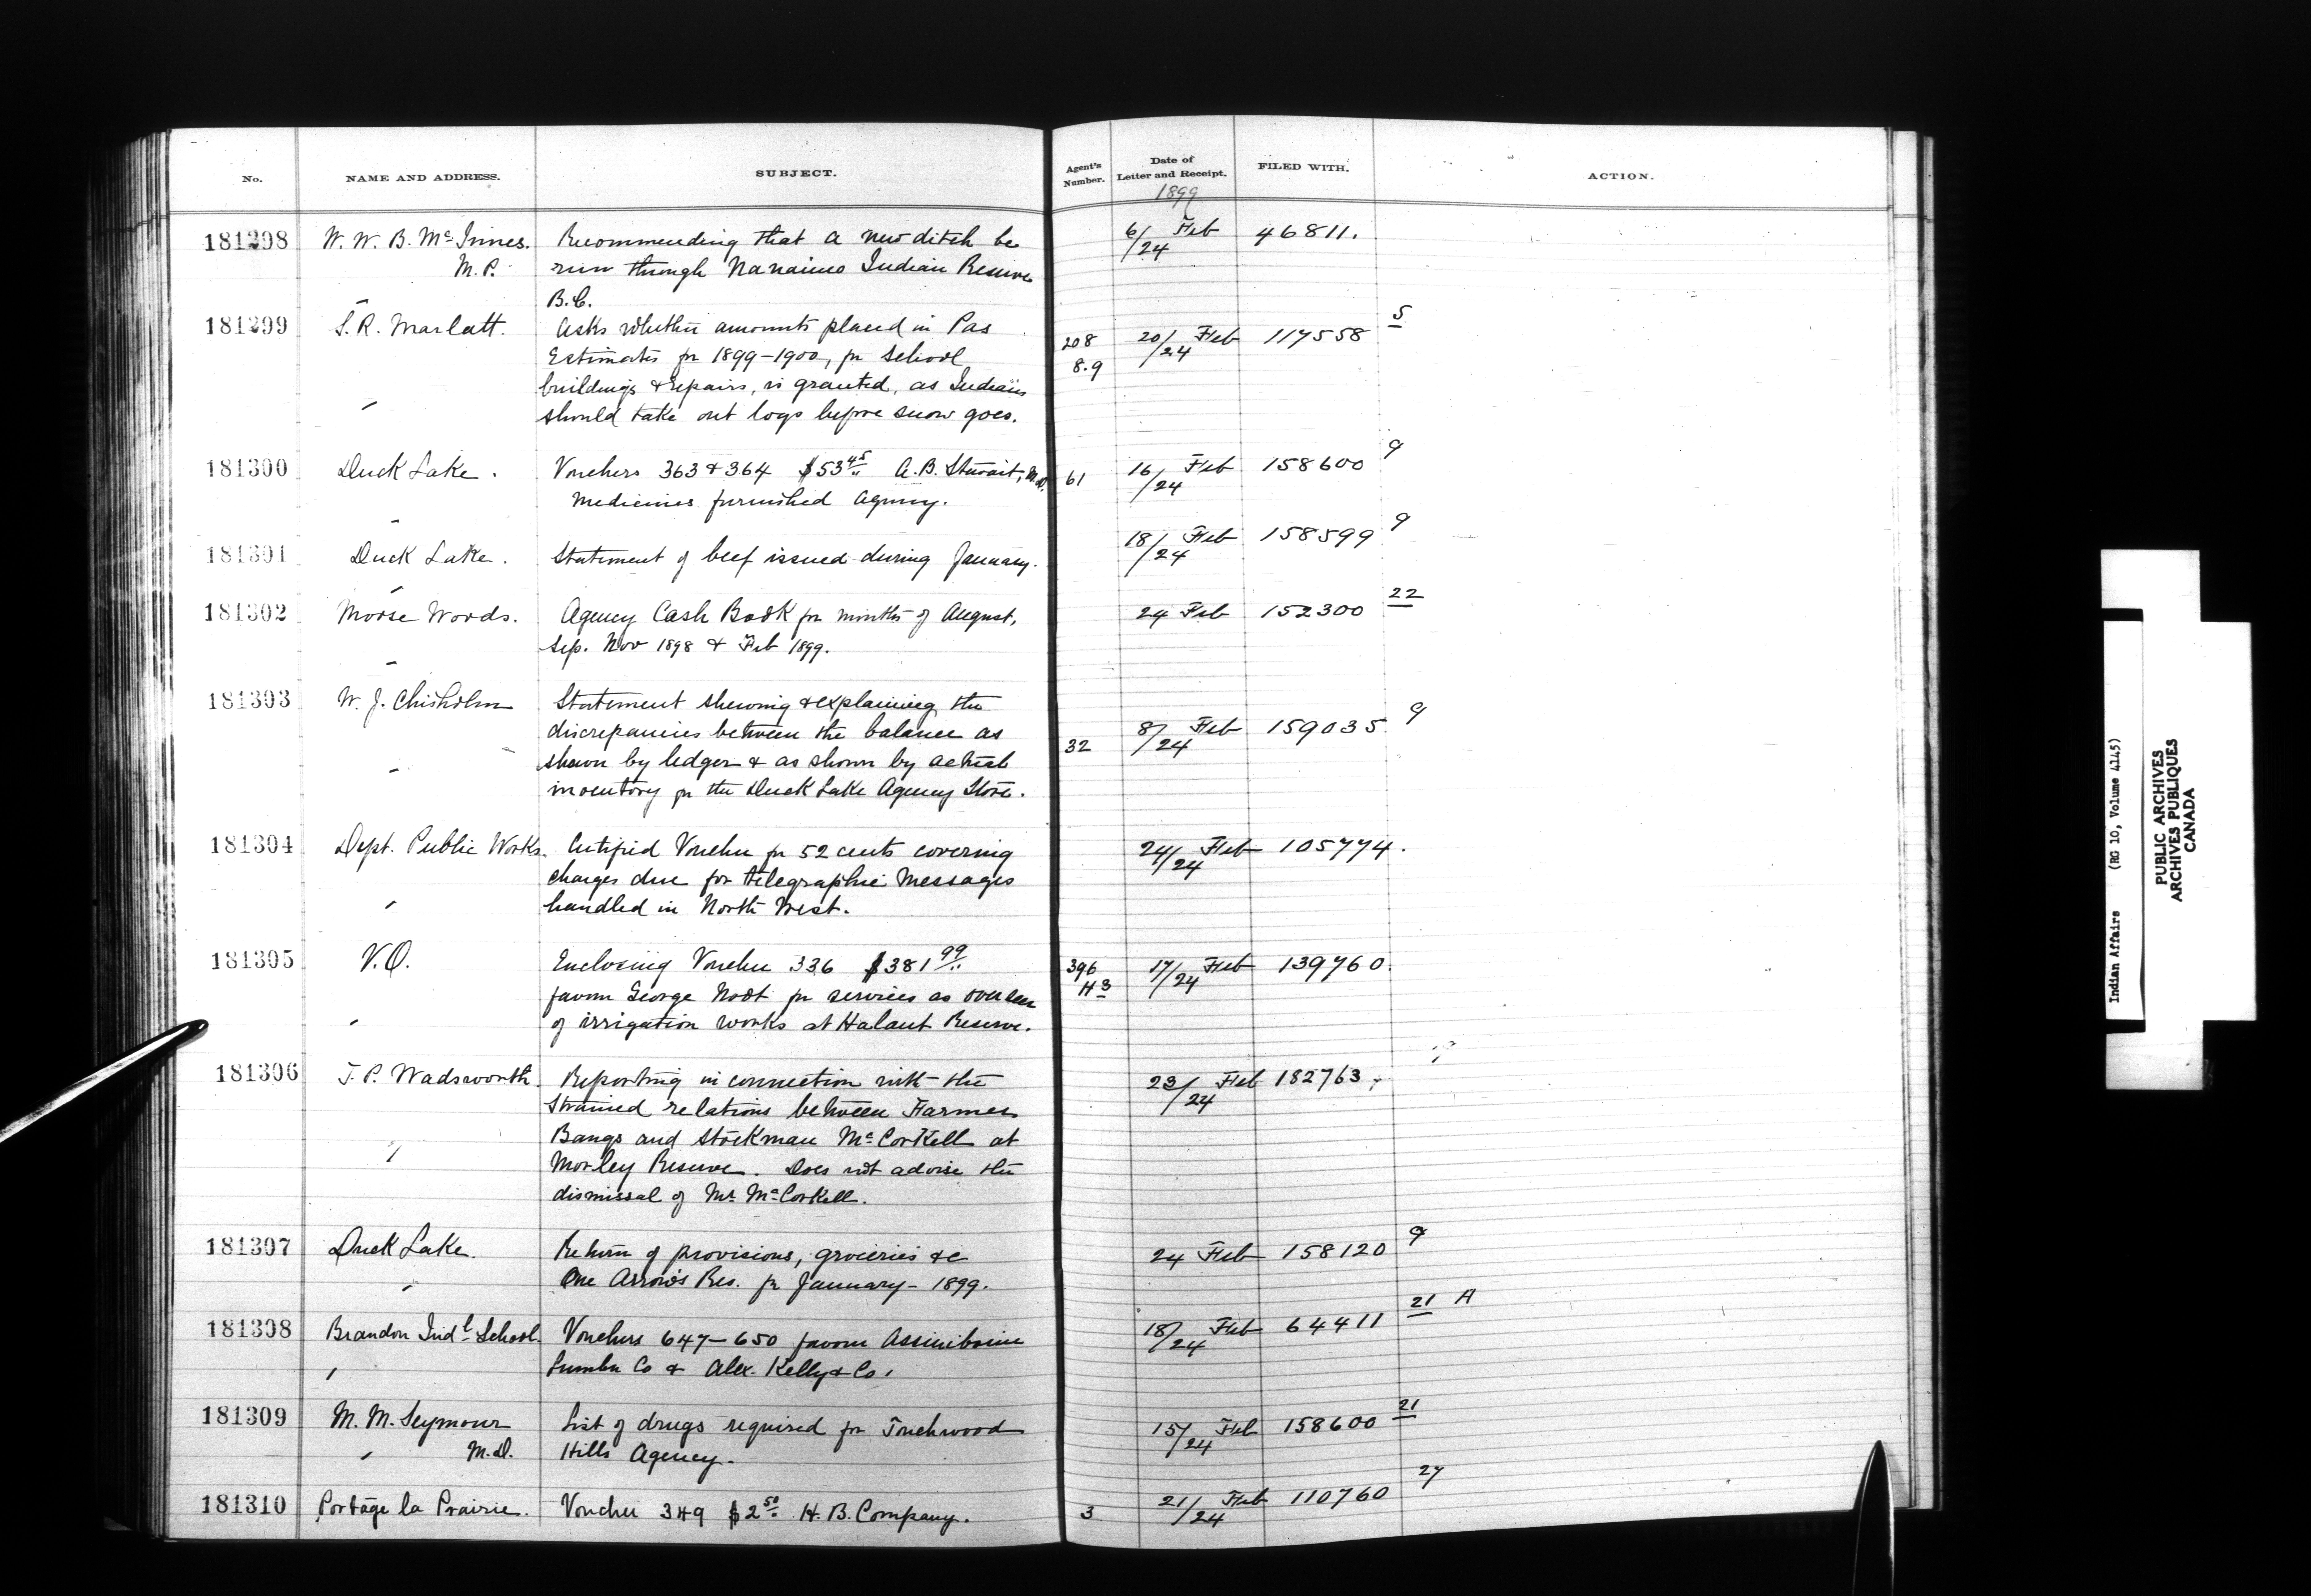 No. NAME AND ADDRESS. SUBJECT. Agent's Number. Date of Letter and Receipt. FILED WITH. ACTION.
1899
181298 W. W. B. McInnes. Recommending that a new ditch be 6/24 Feb 46811.
M.P. run through Nanaimo Indian Reserve
B.C.
181299 S. R. Marlatt. Asks whether amounts placed in Pas 208 20/24 Feb 117558 5
Estimates for 1899-1900, for school 8.9
buildings & repairs, is granted, as Indians
should take out logs before snow goes.
181300 Duck Lake. Vouchers 363 & 364 $53 45 A. B. Stewart, M.D. 61 16/24 Feb 158600 9
Medicines furnished Agency.
181301 Duck Lake. Statement of beef issued during January. 18/24 Feb 158599 9
181302 Moose Woods. Agency Cash Book for months of August, 24 Feb 152300 22
Sep. Nov 1898 & Feb 1899.
181303 W. J. Chisholm Statement shewing & explaining the
discrepancies between the balance as 8/24 Feb 159035 9
shown by ledger & as shown by actual 32
inventory for the Duck Lake Agency Store.
181304 Dept. Public Works. Certified Voucher for 52 cents covering 24/24 Feb 105774.
charges due for telegraphic messages
handled in North West.
181305 V.O. Enclosing Voucher 336 $381 99 396 17/24 Feb 139760.
favour George Root for services as overseer H3
of irrigation works at Halaut Reserve.
181306 T. P. Wadsworth. Reporting in connection with the 23/24 Feb 182763
strained relations between Farmer
Bangs and stockman McCorkell at
Morley Reserve. Does not advise the
dismissal of Mr McCorkell.
181307 Duck Lake. Return of provisions, groceries &c 24 Feb 158120 9
One Arrow's Res. for January - 1899.
181308 Brandon Indl. School Vouchers 647-650 favour Assiniboine 18/24 Feb 64411 21 A
Lumber Co & Alex. Kelly & Co.
181309 M. M. Seymour List of drugs required for Touchwood 15/24 Feb 158600 21
M.D. Hills Agency.
181310 Portage la Prairie. Voucher 349 $2 50 H. B. Company. 3 21/24 Feb 110760 27
Indian Affairs (RG 10, Volume 4145)
PUBLIC ARCHIVES
ARCHIVES PUBLIQUES
CANADA